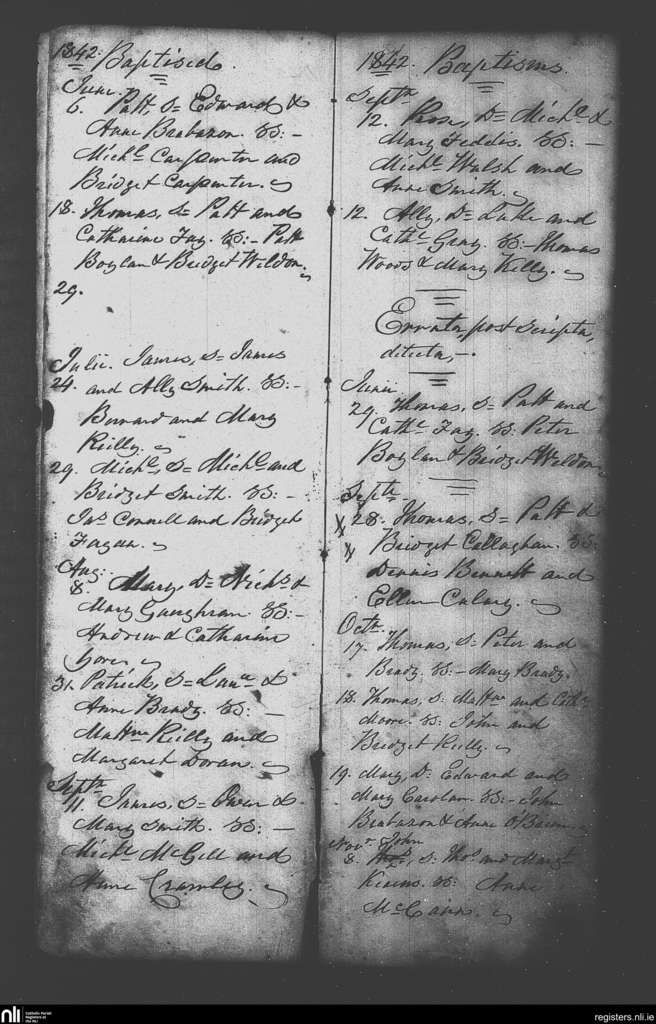 1842. Baptised.
June.
6. Patt, S= Edward &
Anne Brabazon. SS: -
Michl. Carpenter and
Bridget Carpenter.
18. Thomas, S= Patt and
Catharine Fay. SS: - Patt
Boylan & Bridget Weldon.
29.
Julii. James, S= James
24. and Ally Smith. SS: -
Bernard and Mary
Reilly.
29. Michl., S= Michl. and
Bridget Smith. SS: -
Jas. Connell and Bridget
Fagan.
Aug:
8. Mary, D= Nichs. &
Mary Gaughran. SS: -
Andrew & Catharine
31. Patrick, S= Laue. &
Anne Brady. SS: -
Matthw Reilly and
Margaret Doran.
Septr.
11. James, S= Owen &
Mary Smith. SS: -
Michl. McGill and
Anne
1842. Baptisms.
Septr.
12. Rose, D= Michl. &
Mary Feddis. SS: -
Michl. Walsh and
Anne Smith.
12. Ally, D= Luke and
Cathe. Gray. SS: - Thomas
Woods & Mary Kelly.
Errata, post scripta,
ditecta, -.
Junii
29. Thomas, S= Patt and
Cathe. Fay. SS: Peter
Boylan & Bridget Weldon
Septr.
28. Thomas, S= Patt &
Bridget Callaghan. SS:
Dennis Bennett and
Ellen
Octr.
17. Thomas, S= Peter and
Brady. SS: - Mary Brady.
18. Thomas, S: Matthw and Cathe.
Moore. SS: John and
Bridget Reilly.
19. Mary, D: Edward and
Mary Carolan. SS: - John
Brabazon & Anne O'Brien
Novr. John
8. Thos., S: Thos. and Margt.
SS: Anne
McCann.
nli
Catholic Parish
Registers at
the NLI
registers.nli.ie